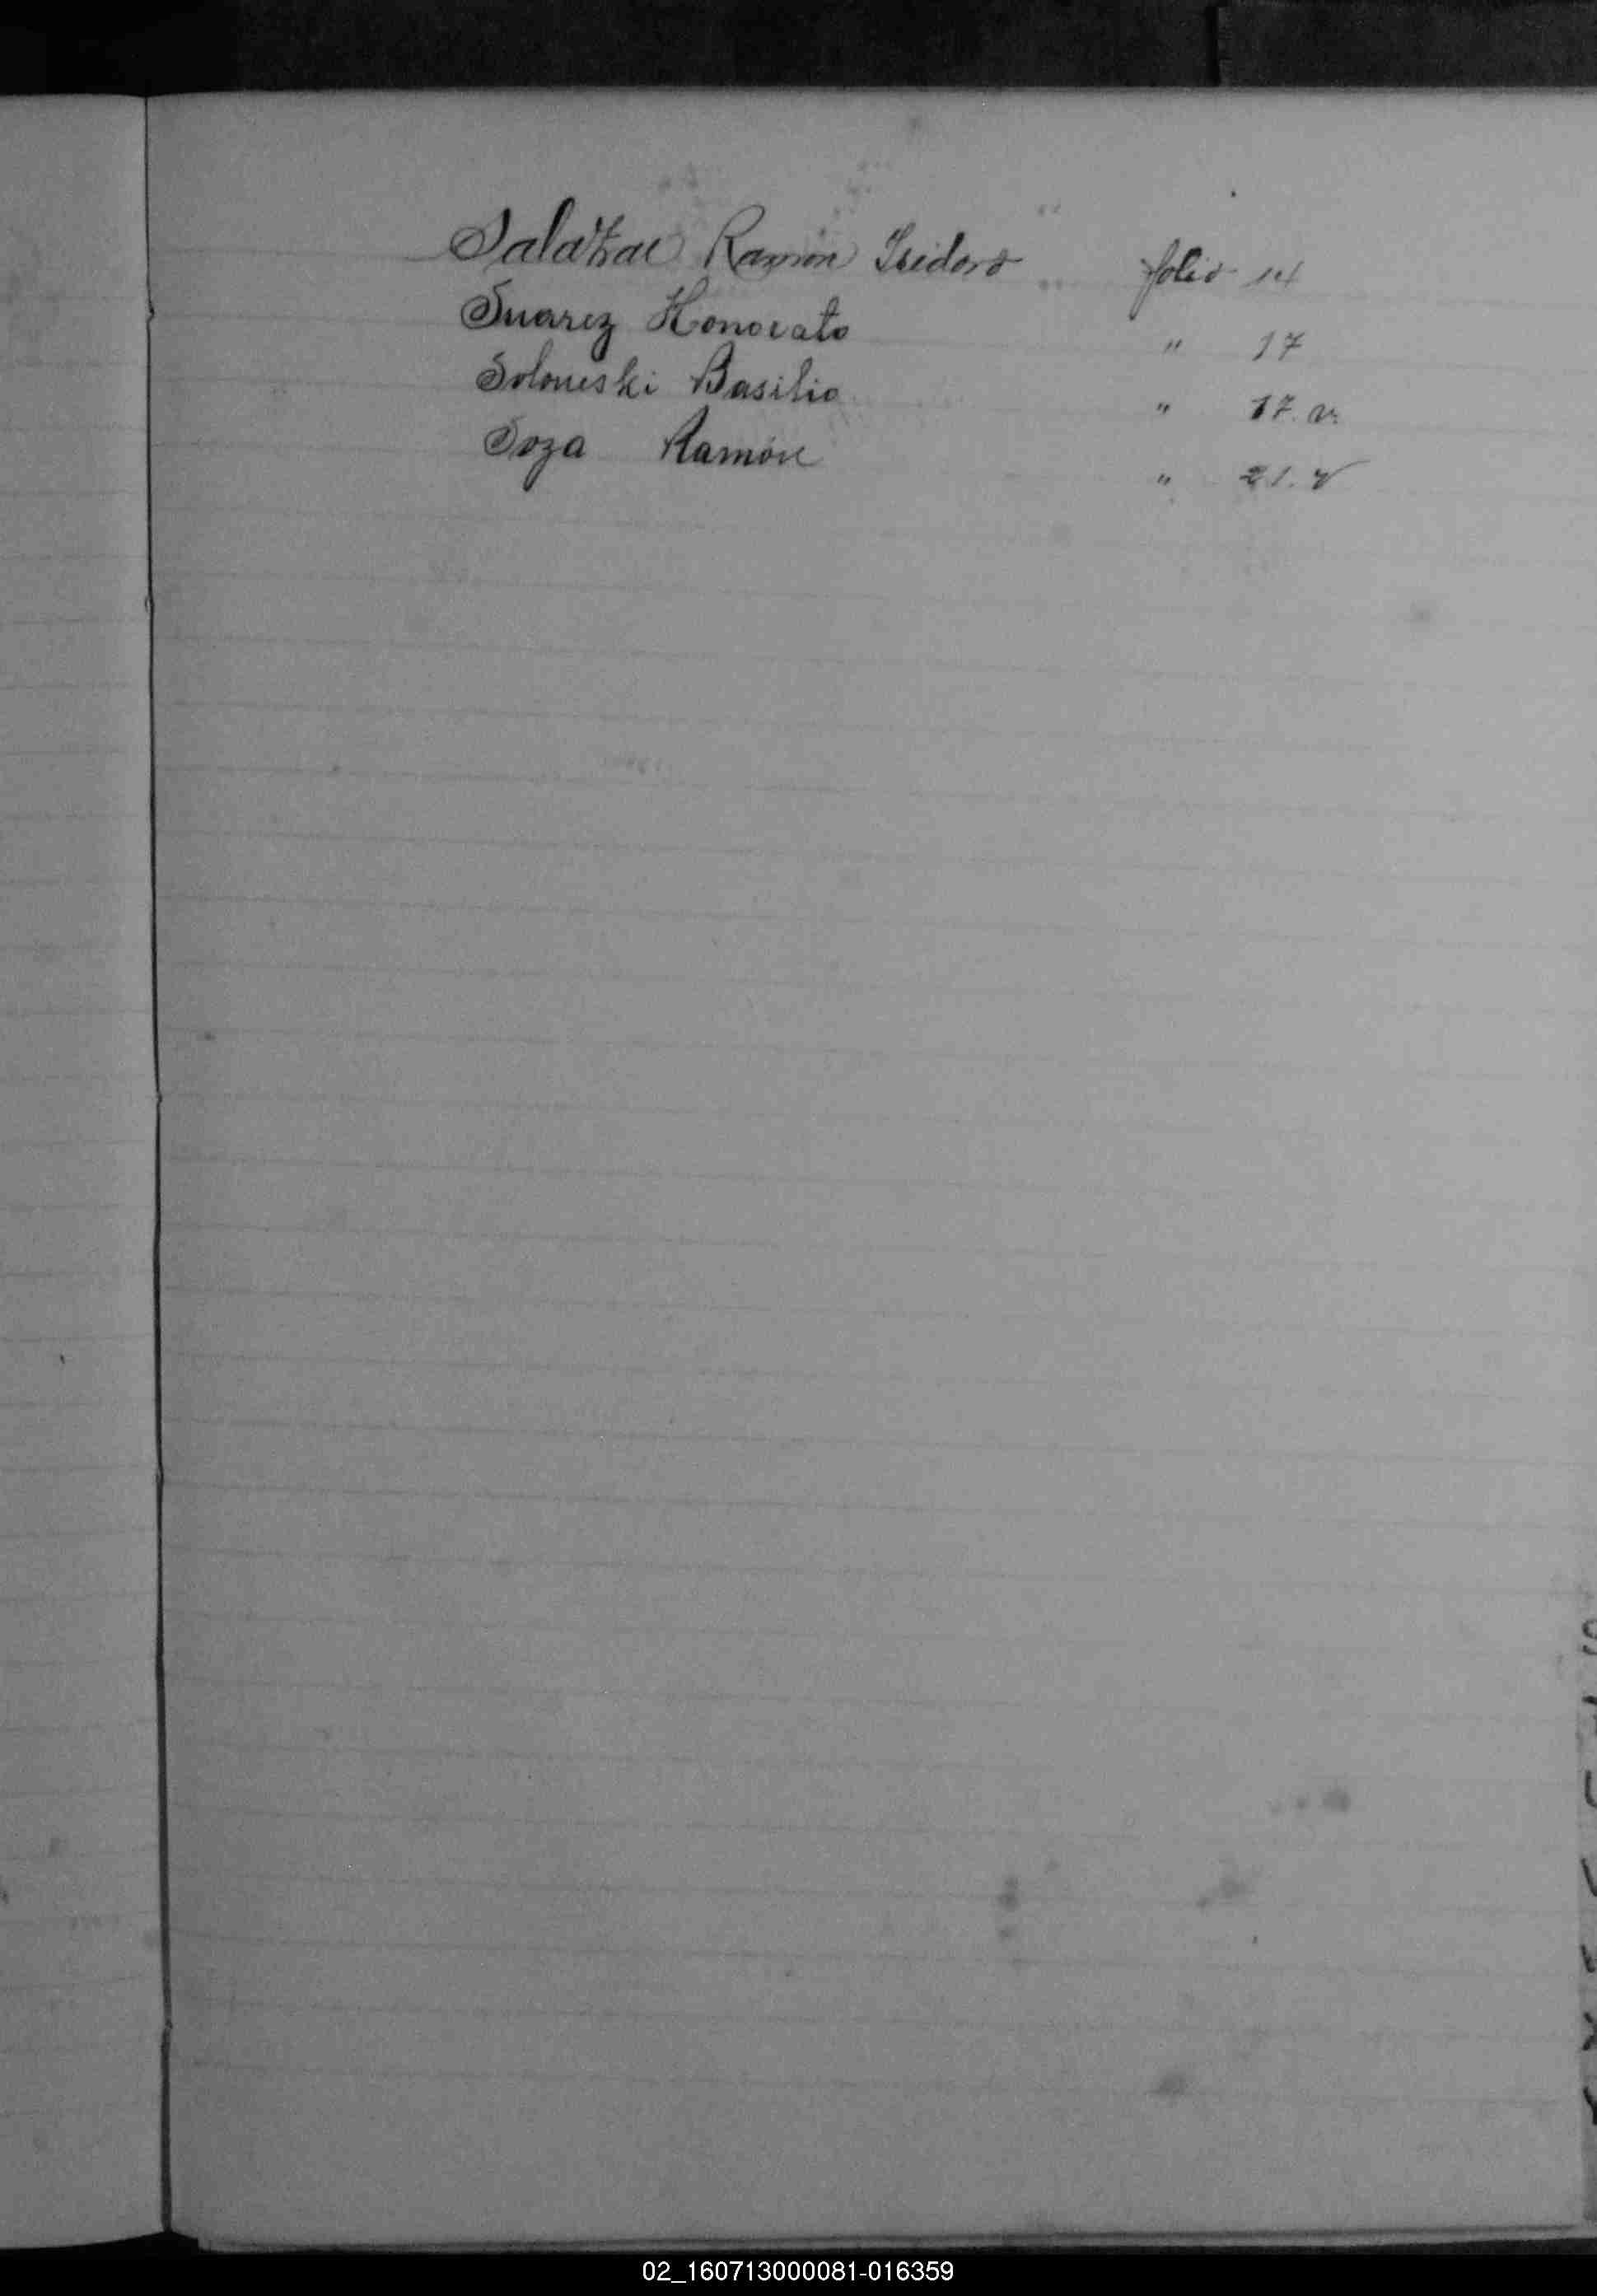 Ramón Isidoro folio 14
Suarez Honorato " 17
Soloneski Basilio " 17. v.
Soza Ramón " 21. v
S
02_160713000081-016359